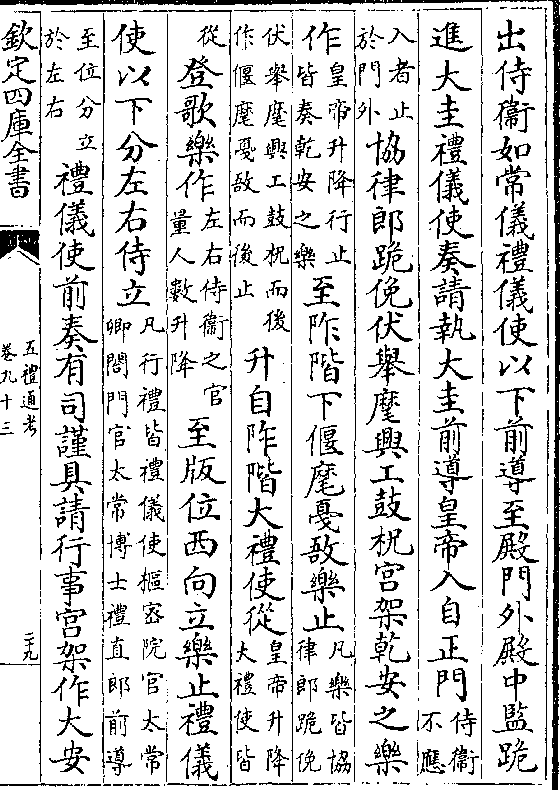 出侍衞如常儀禮儀使以下前導至殿門外殿中監跪
進大圭禮儀使奏請執大圭前導皇帝入自正門侍衞
不應
入者止
於門外協律郎跪俛伏舉麾興工鼓柷宫架乾安之樂
作皇帝升降行止
皆奏乾安之樂至阼階下偃麾戞敔樂止凡樂皆協
律郎跪俛
伏舉麾興工鼓柷而後
作偃麾戞敔而後止升自阼階大禮使從皇帝升降
大禮使皆
從登歌樂作左右侍衞之官
量人數升降至版位西向立樂止禮儀
使以下分左右侍立凡行禮皆禮儀使樞密院官太常
卿閤門官太常博士禮直郎前導
至位分立
於左右禮儀使前奏有司謹具請行事宫架作大安
欽定四庫全書
五禮通考
卷九十三
二九